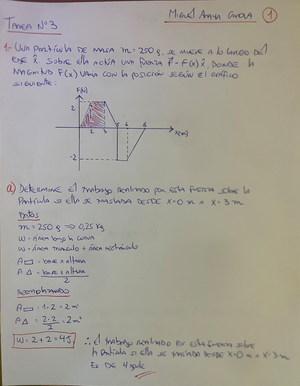 Miguel
①
TAREA Nº3
1.- UNA PARTÍCULA DE MASA m=250g, SE MUEVE A lo LARGO DEL
EJE x̂. SOBRE ella ACTÚA UNA FUERZA F⃗ = F(x) x̂, DONDE LA
MAGNITUD F(x) VARÍA CON LA POSICIÓN SEGÚN El GRÁFICO
SIGUIENTE:
F(N)
2
2 3 5 6 8 x(m)
-2
a) DETERMINE El TRABAJO REALIZADO POR ESTA FUERZA SOBRE LA
PARTÍCULA SI ella SE TRASLADA DESDE X=0 m A X=3m
DATOS
m=250g ⇒ 0,25 Kg
W= ÁREA bajo la CURVA
W= ÁREA TRIÁNGULO + ÁREA RECTÁNGULO
A▭ = BASE x ALTURA
A△ = BASE x ALTURA
2
A▭ = 1·2 = 2m²
A△ = 2·2 = 2m²
2
W = 2+2 = 4J
∴ El TRABAJO REALIZADO POR ESTA FUERZA SOBRE
la PARTÍCULA SI ella SE TRASLADA DESDE X=0m A X=3m
ES DE 4